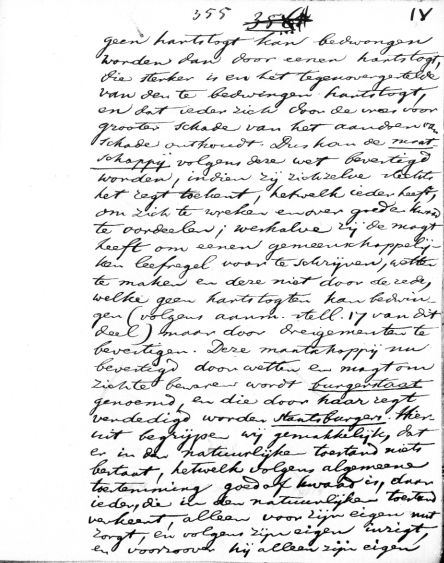 355 18
geen hartstogt kan bedwongen
worden dan door eenen hartstogt,
die sterker is en het tegenovergestelde
van den te bedwingen hartstogt,
en dat ieder zich door de vrees voor
grooter schade van het aandoen van
schade onthoudt. Dus kan de maat
schappij volgens deze wet bevestigd
worden, indien zij zichzelve slechts
het regt toekent, hetwelk ieder heeft,
om zich te wreken en over goed en kwaad
te oordeelen; weshalve zij de magt
heeft om eenen gemeenschappelij-
ken leefregel voor te schrijven, wetten
te maken en deze niet door de rede,
welke geen hartstogten kan bedwin
gen (volgens aanm. stell. 17 van dit
deel) maar door dreigementen te
bevestigen. Deze maatschappij nu
bevestigd door wetten en magt om
zich te bewaren wordt burgerstaat
genoemd, en die door haar regt
verdedigd worden staatsburgers. Hier
uit begrijpen wij gemakkelijk, dat
er in den natuurlijke toestand niets
bestaat, hetwelk volgens algemeene
toestemming goed of kwaad is, daar
ieder, die in den natuurlijken toestand
verkeert, alleen voor zijn eigen nut
zorgt, en volgens zijn eigen inzigt,
en voorzoover hij alleen zijn eigen